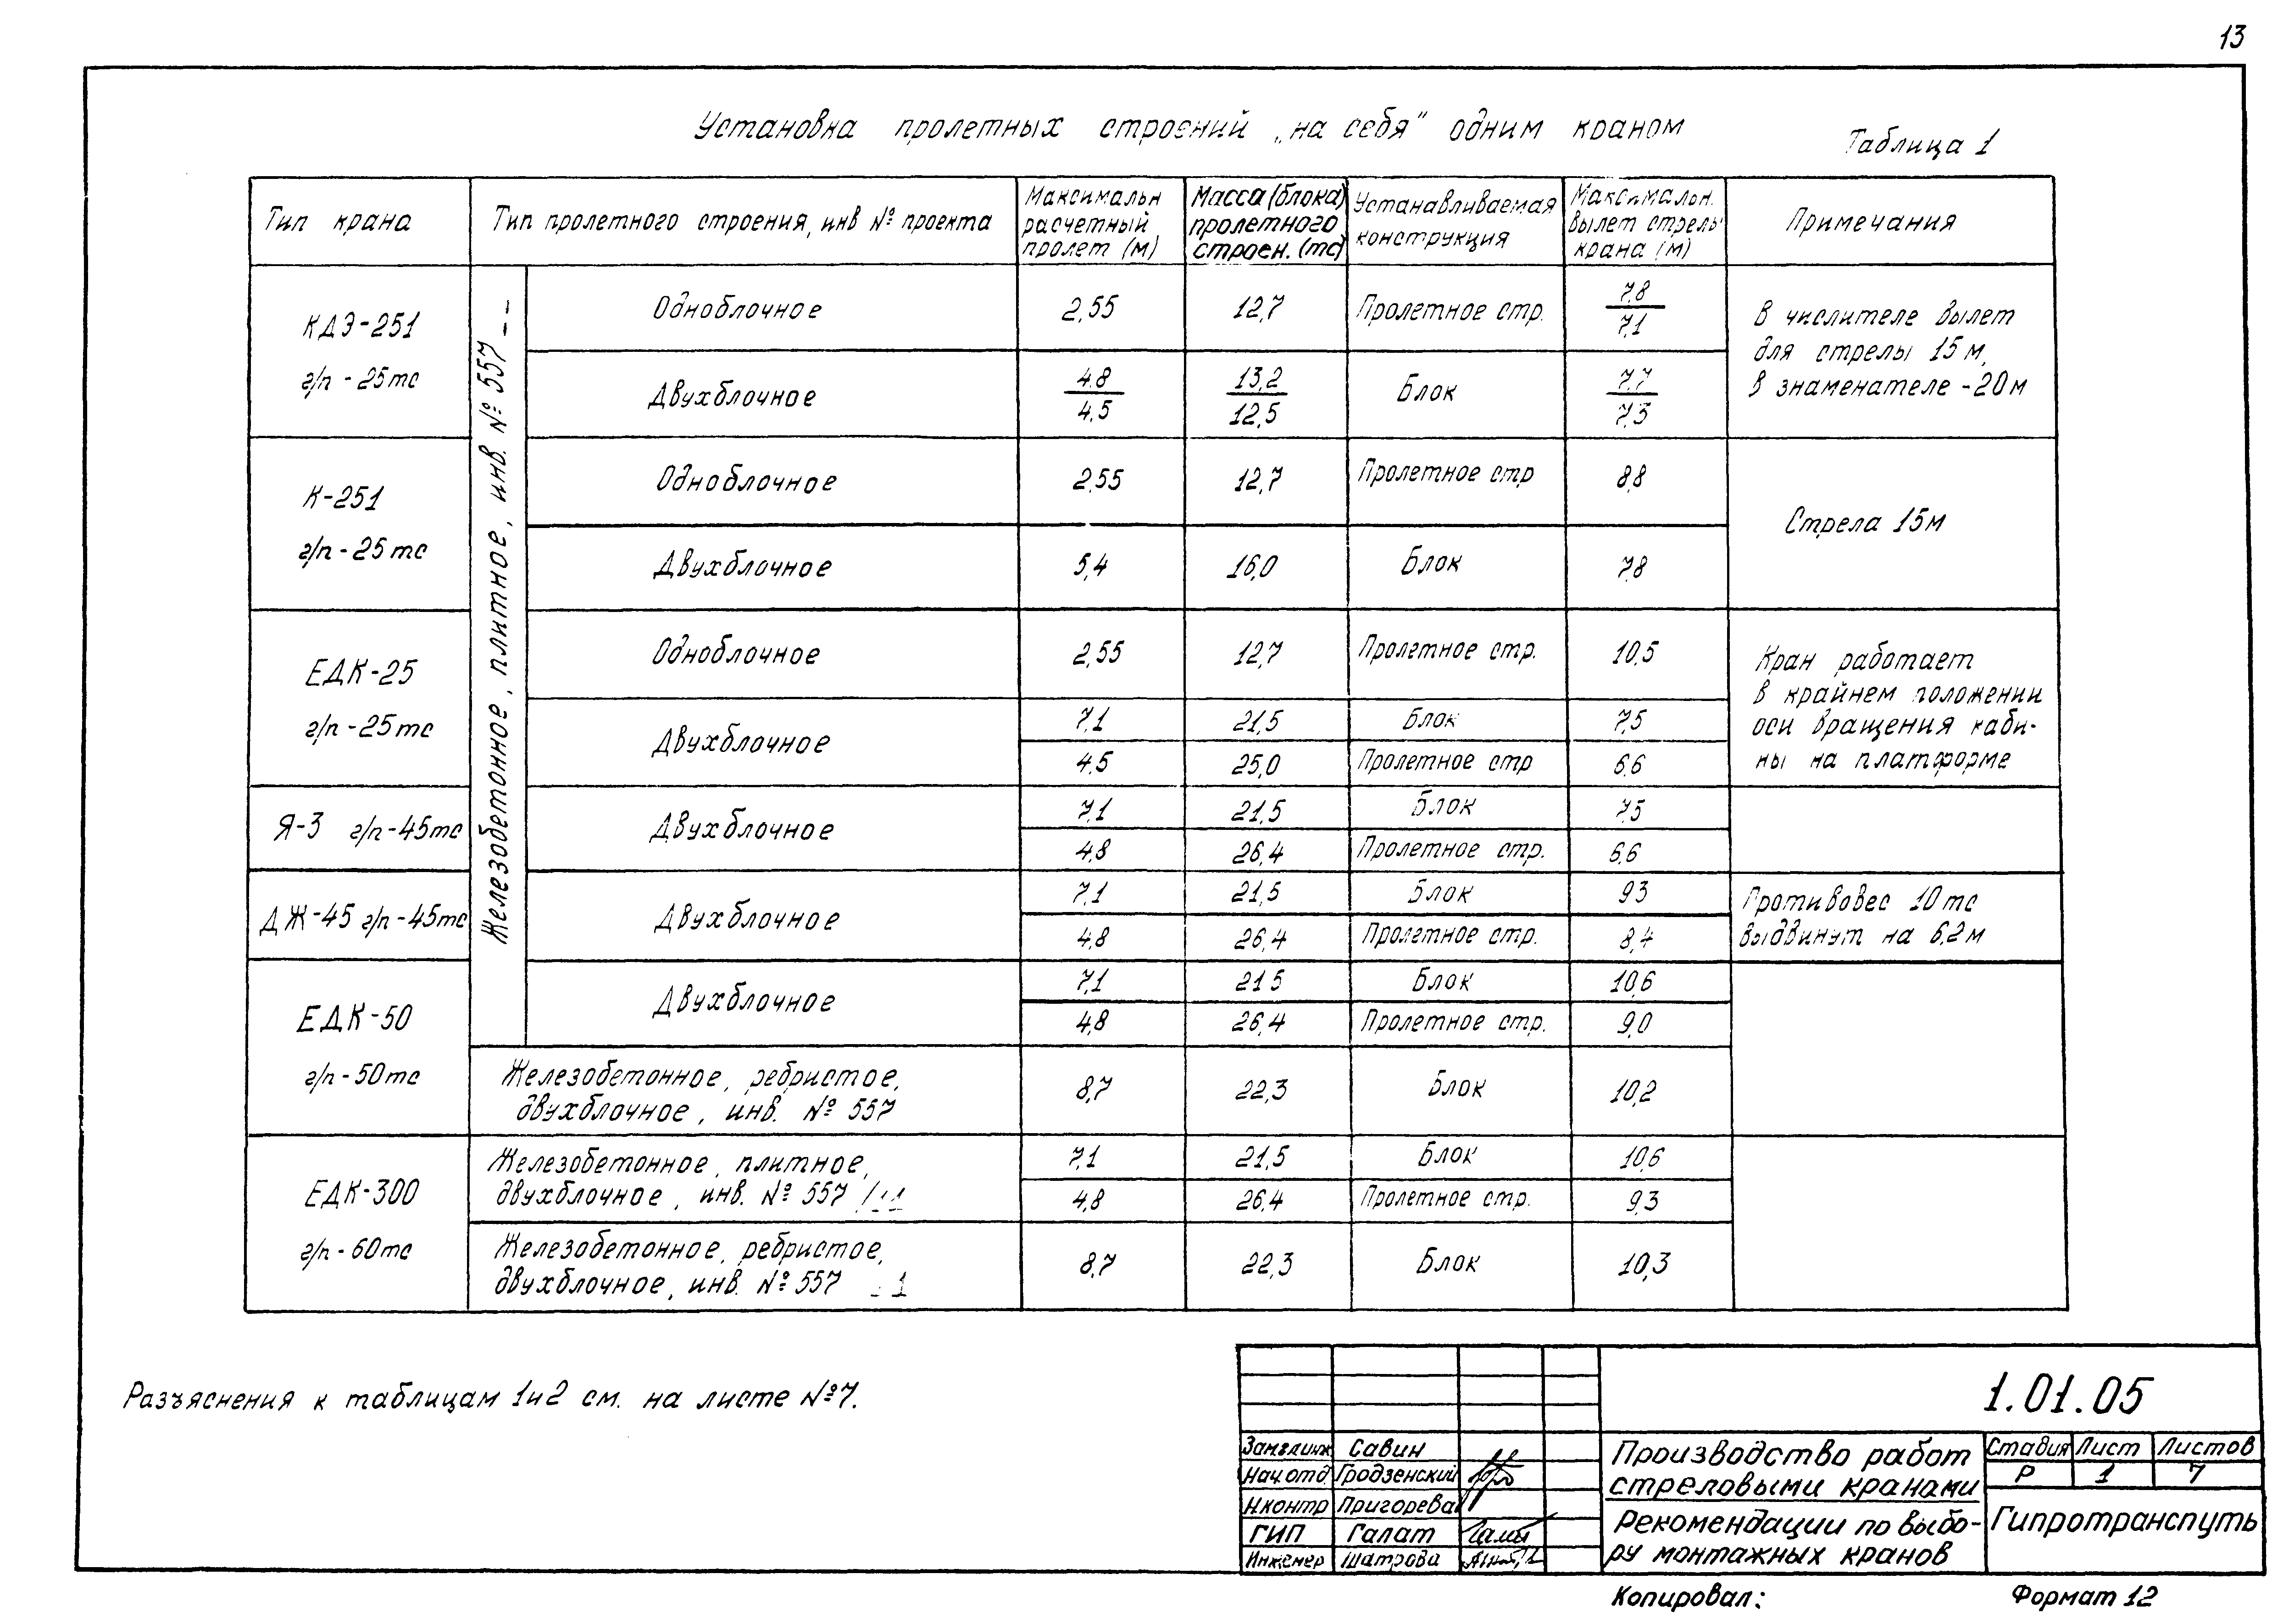 13
Установка пролетных строений „на себя" одним краном
Таблица 1
Тип крана
Тип пролетного строения, инв № проекта
Максимальн
расчетный
пролет (м)
Масса (блока)
пролетного
строен. (тс)
Устанавливаемая
конструкция
Максимальн.
вылет стрелы
крана (м)
Примечания
Железобетонное, плитное, инв. № 557
КДЭ-251
г/п - 25тс
Одноблочное
2,55
12,7
Пролетное стр.
7,8
7,1
В числителе вылет
для стрелы 15 м,
в знаменателе - 20м
Двухблочное
4.8
4,5
13,2
12,5
Блок
7,7
7,3
К-251
г/п - 25тс
Одноблочное
2,55
12,7
Пролетное стр
8,8
Стрела 15м
Двухблочное
5,4
16,0
Блок
7,8
ЕДК-25
г/п - 25тс
Одноблочное
2,55
12,7
Пролетное стр.
10,5
Кран работает
в крайнем положении
оси вращения каби-
ны на платформе
Двухблочное
7,1
21,5
Блок
7,5
4,5
25,0
Пролетное стр
6,6
Я-3 г/п - 45тс
Двухблочное
7,1
21,5
Блок
7,5
4,8
26,4
Пролетное стр.
6,6
ДЖ-45 г/п - 45тс
Двухблочное
7,1
21,5
Блок
9,3
Противовес 10тс
выдвинут на 6,2м
4,8
26,4
Пролетное стр.
8,4
ЕДК-50
г/п - 50тс
Двухблочное
7,1
21,5
Блок
10,6
4,8
26,4
Пролетное стр.
9,0
Железобетонное, ребристое,
двухблочное, инв. № 557
8,7
22,3
Блок
10,2
ЕДК-300
г/п - 60тс
Железобетонное, плитное,
двухблочное, инв. № 557
7,1
21,5
Блок
10,6
4,8
26,4
Пролетное стр.
9,3
Железобетонное, ребристое,
двухблочное, инв. № 557
8,7
22,3
Блок
10,3
Разъяснения к таблицам 1и2 см. на листе №7.
1.01.05
Зам.гл.инж. Савин
Нач.отд Гродзенский
Н.контр Пригорева
ГИП Галат
Инженер Шатрова
Производство работ
стреловыми кранами
Рекомендации по выбо-
ру монтажных кранов
Стадия Лист Листов
Р 1 7
Гипротранспуть
Копировал:
Формат 12